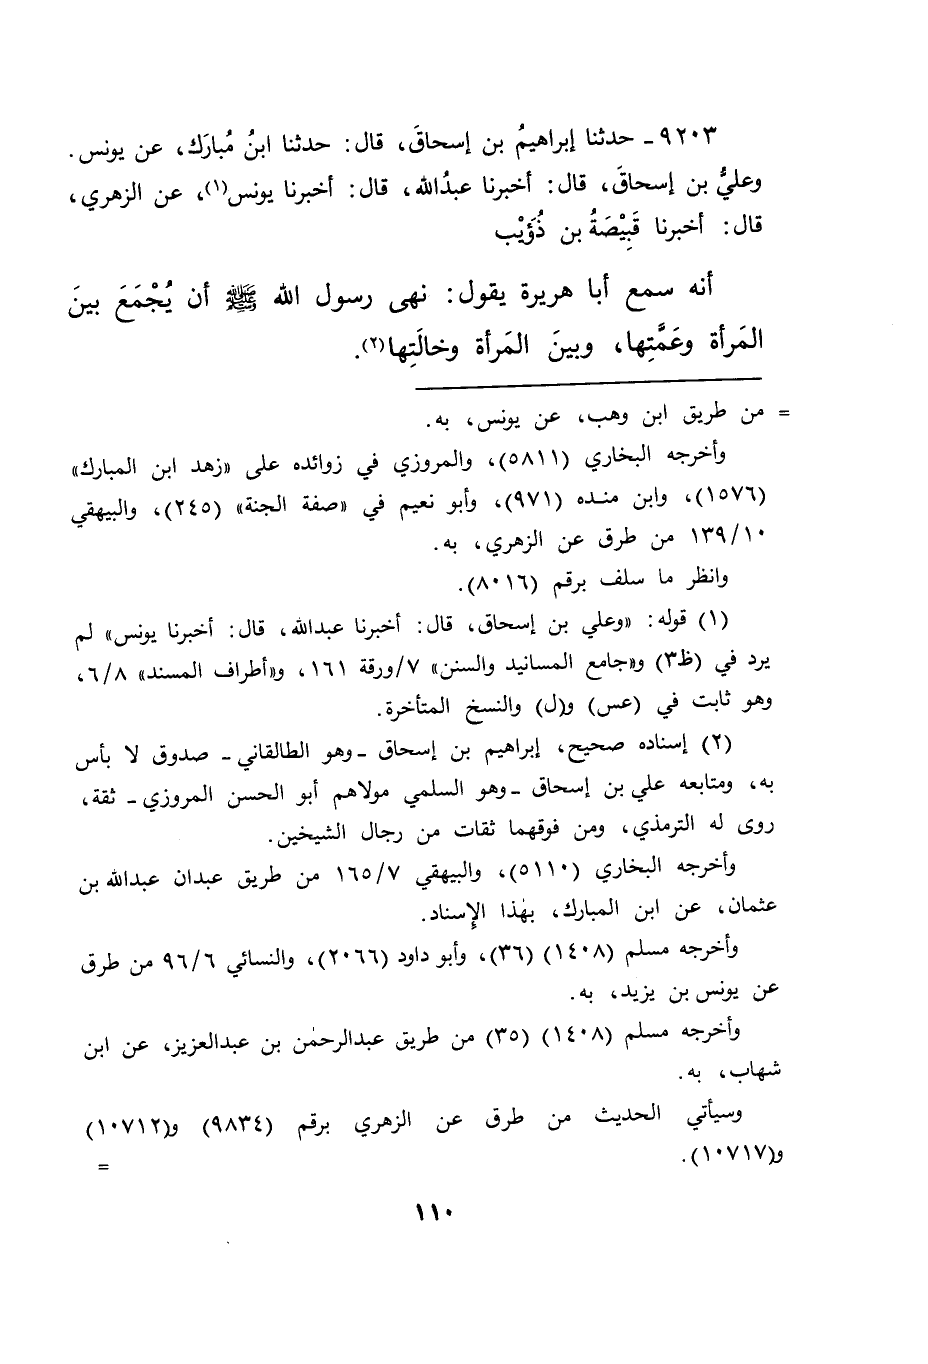 ٩٢٠٣ ـ حدثنا إبراهيمُ بن إسحاقَ، قال: حدثنا ابنُ مُبارَك، عن يونس.
وعليُّ بن إسحاقَ، قال: أخبرنا عبدُالله، قال: أخبرنا يونس(١)، عن الزهري،
قال: أخبرنا قَبِيْصَةُ بن ذُؤَيْب
أنه سمع أبا هريرة يقول: نهى رسول الله ﷺ أن يُجْمَعَ بينَ
المَرأة وعَمَّتِها، وبينَ المَرأة وخالَتِها(٢).
= من طريق ابن وهب، عن يونس، به.
وأخرجه البخاري (٥٨١١)، والمروزي في زوائده على «زهد ابن المبارك»
(١٥٧٦)، وابن منده (٩٧١)، وأبو نعيم في «صفة الجنة» (٢٤٥)، والبيهقي
١٣٩/١٠ من طرق عن الزهري، به.
وانظر ما سلف برقم (٨٠١٦).
(١) قوله: «وعلي بن إسحاق، قال: أخبرنا عبدالله، قال: أخبرنا يونس» لم
يرد في (ظ٣) و«جامع المسانيد والسنن» ٧/ورقة ١٦١، و«أطراف المسند» ٦/٨،
وهو ثابت في (عس) و(ل) والنسخ المتأخرة.
(٢) إسناده صحيح، إبراهيم بن إسحاق ـ وهو الطالقاني ـ صدوق لا بأس
به، ومتابعه علي بن إسحاق ـ وهو السلمي مولاهم أبو الحسن المروزي ـ ثقة،
روى له الترمذي، ومن فوقهما ثقات من رجال الشيخين.
وأخرجه البخاري (٥١١٠)، والبيهقي ١٦٥/٧ من طريق عبدان عبدالله بن
عثمان، عن ابن المبارك، بهٰذا الإِسناد.
وأخرجه مسلم (١٤٠٨) (٣٦)، وأبو داود (٢٠٦٦)، والنسائي ٩٦/٦ من طرق
عن يونس بن يزيد، به.
وأخرجه مسلم (١٤٠٨) (٣٥) من طريق عبدالرحمٰن بن عبدالعزيز، عن ابن
شهاب، به.
وسيأتي الحديث من طرق عن الزهري برقم (٩٨٣٤) و(١٠٧١٢)
و(١٠٧١٧).
=
١١٠